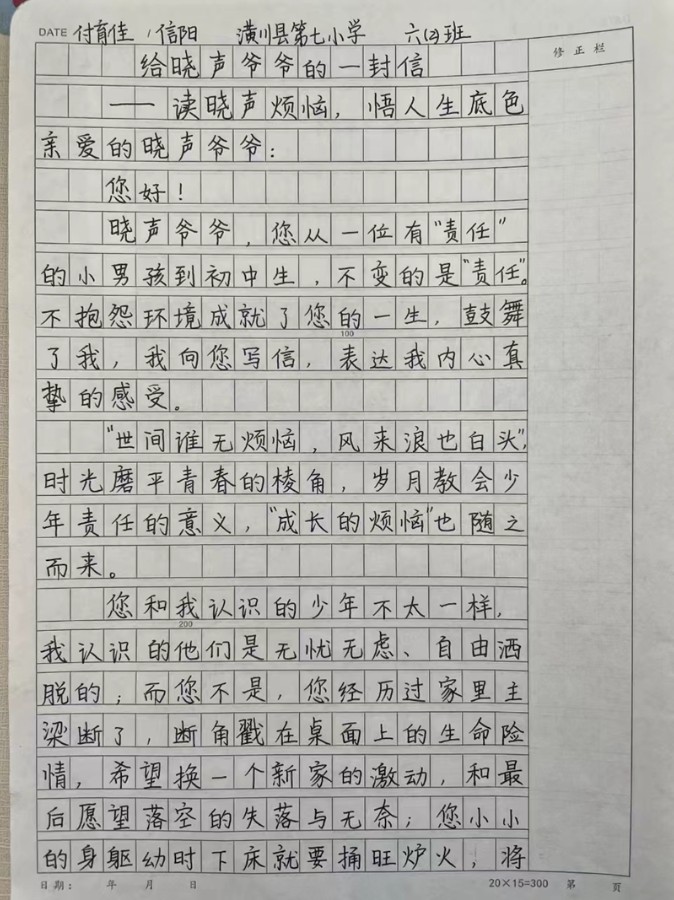 DATE 付育佳 / 信阳 潢川县第七小学 六(2)班
修正栏
给晓声爷爷的一封信
——读晓声烦恼，悟人生底色
亲爱的晓声爷爷：
您好！
晓声爷爷，您从一位有“责任”
的小男孩到初中生，不变的是“责任”。
不抱怨环境成就了您的一生，鼓舞
100
了我，我向您写信，表达我内心真
挚的感受。
“世间谁无烦恼，风来浪也白头”，
时光磨平青春的棱角，岁月教会少
年责任的意义，“成长的烦恼”也随之
而来。
您和我认识的少年不太一样，
200
我认识的他们是无忧无虑、自由洒
脱的；而您不是，您经历过家里主
梁断了，断角戳在桌面上的生命险
情，希望换一个新家的激动，和最
后愿望落空的失落与无奈；您小小
的身躯幼时下床就要捅旺炉火，将
日期： 年 月 日 20×15=300 第 页